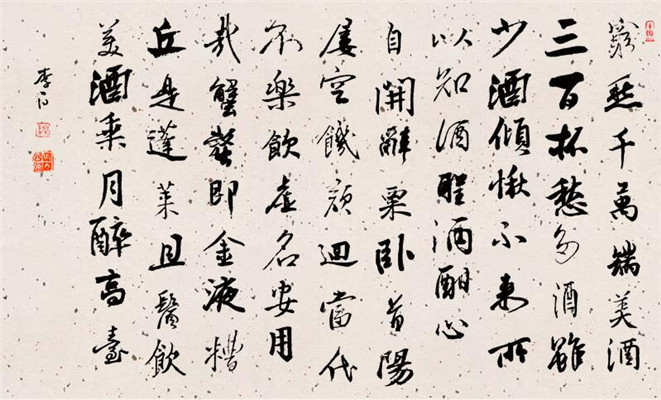 窮愁千萬端美酒
三百杯愁多酒雖
少酒傾愁不來所
以知酒聖酒酣心
自開辭粟臥首陽
屢空饑顏迴當代
不樂飲虛名安用
哉蟹螯即金液糟
丘是蓬萊且須飲
美酒乘月醉高臺
李白